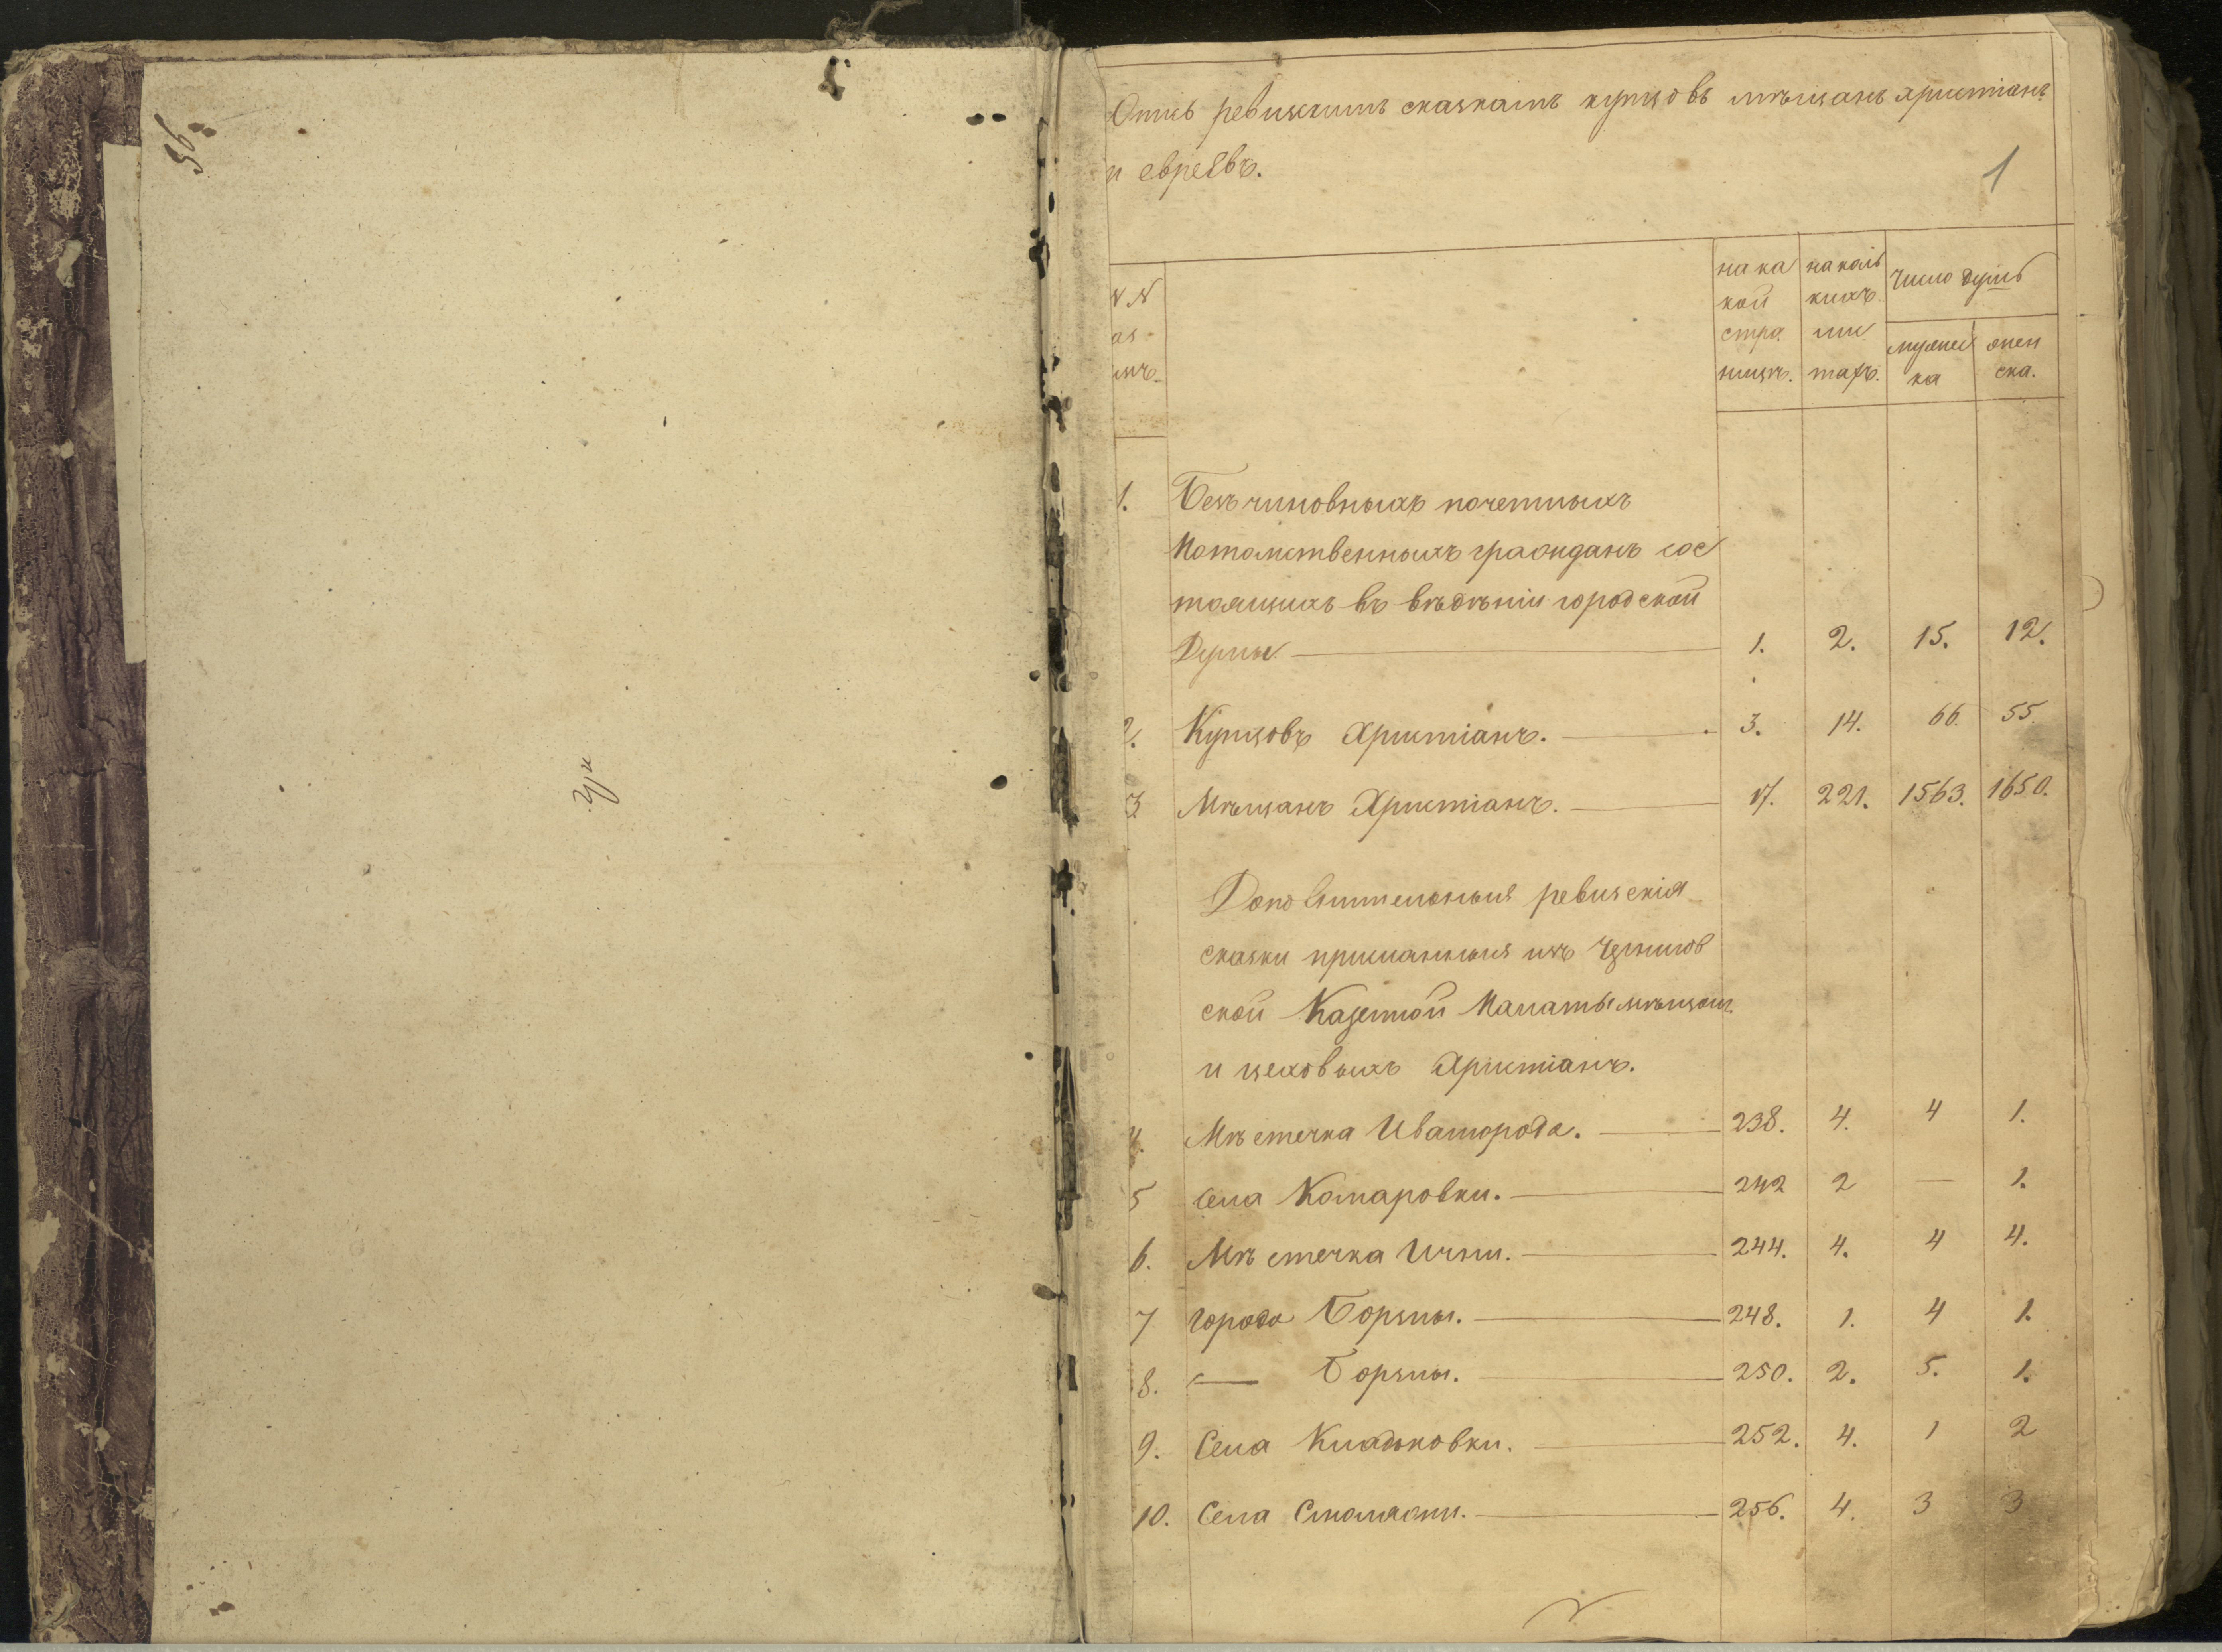 Опись ревизскимъ сказкамъ купцовъ мѣщанъ христіанъ
и евреѣвъ.
1
NN
мъ.
на ка
кой
стра
ницѣ.
на коль
кихъ
лис
тахъ.
Число душъ
мужес
ка
жен
ска.
1. Безчиновныхъ почетныхъ
Потомственныхъ гражданъ сос
тоящихъ въ вѣдѣніи городской
Думы — 1. 2. 15. 12.
2. Купцовъ Христіанъ. — 3. 14. 66. 55.
3 Мѣщанъ Христіанъ. — 17. 221. 1563. 1650.
Дополнительныя ревизскія
сказки присланныя изъ Чернигов
ской Казенной Палаты мѣщанъ
и цеховыхъ Христіанъ.
4. Мѣстечка Ивангорода. — 238. 4. 4 1.
5 Села Комаровки. — 242 2 — 1.
6. Мѣстечка Ични. — 244. 4. 4 4.
7 города Борзны. — 248. 1. 4 1.
8. — Борзны. — 250. 2. 5. 1.
9. Села Кладьковки. — 252. 4. 1 2
10. Села Смоляжи. — 256. 4. 3 3